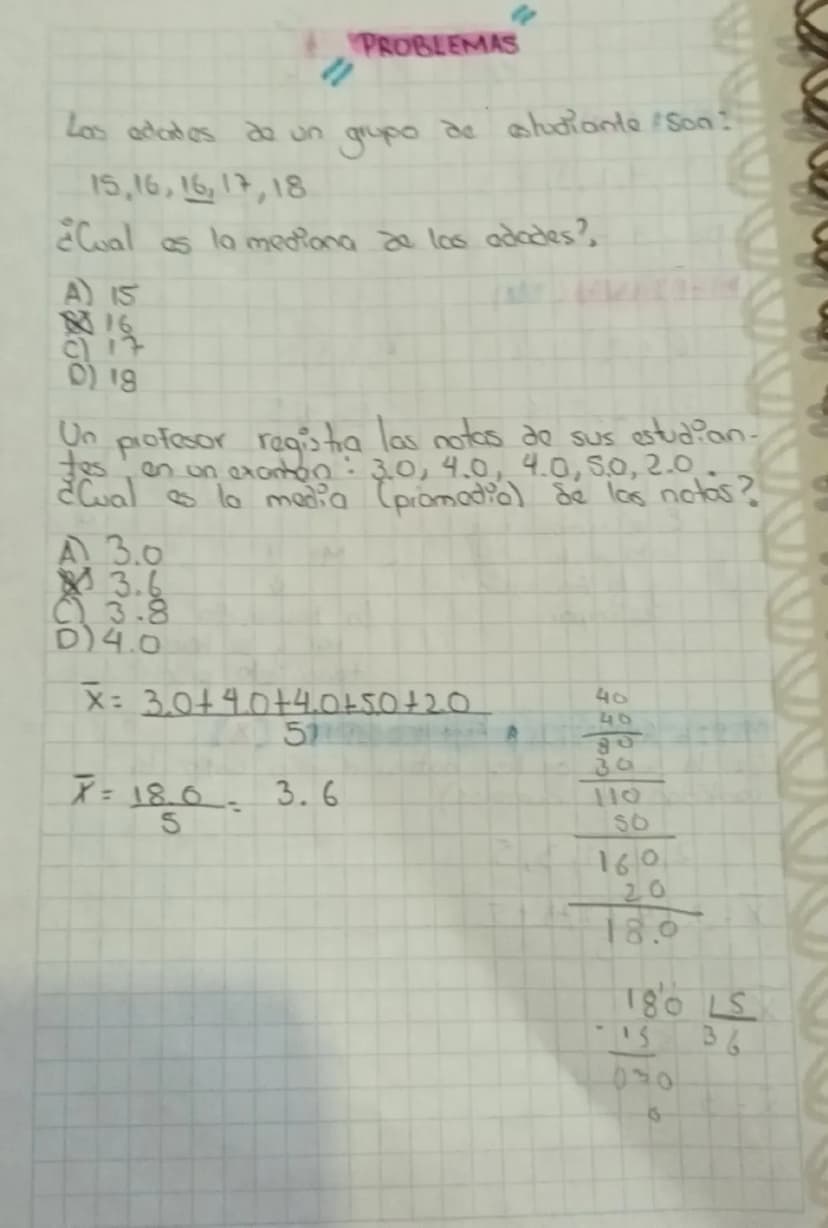 PROBLEMAS
Las edades de un grupo de estudiante son:
15, 16, 16, 17, 18
¿Cual es la mediana de las edades?
A) 15
B) 16
C) 17
D) 18
Un profesor registra las notas de sus estudian-
tes en un examen: 3.0, 4.0, 4.0, 5.0, 2.0.
¿Cual es la media (promedio) de las notas?
A) 3.0
B) 3.6
C) 3.8
D) 4.0
x̄ = 3.0+4.0+4.0+5.0+2.0
5
x̄ = 18.0 = 3.6
5
40
40
80
30
110
50
160
20
18.0
180 5
-15 36
030
0